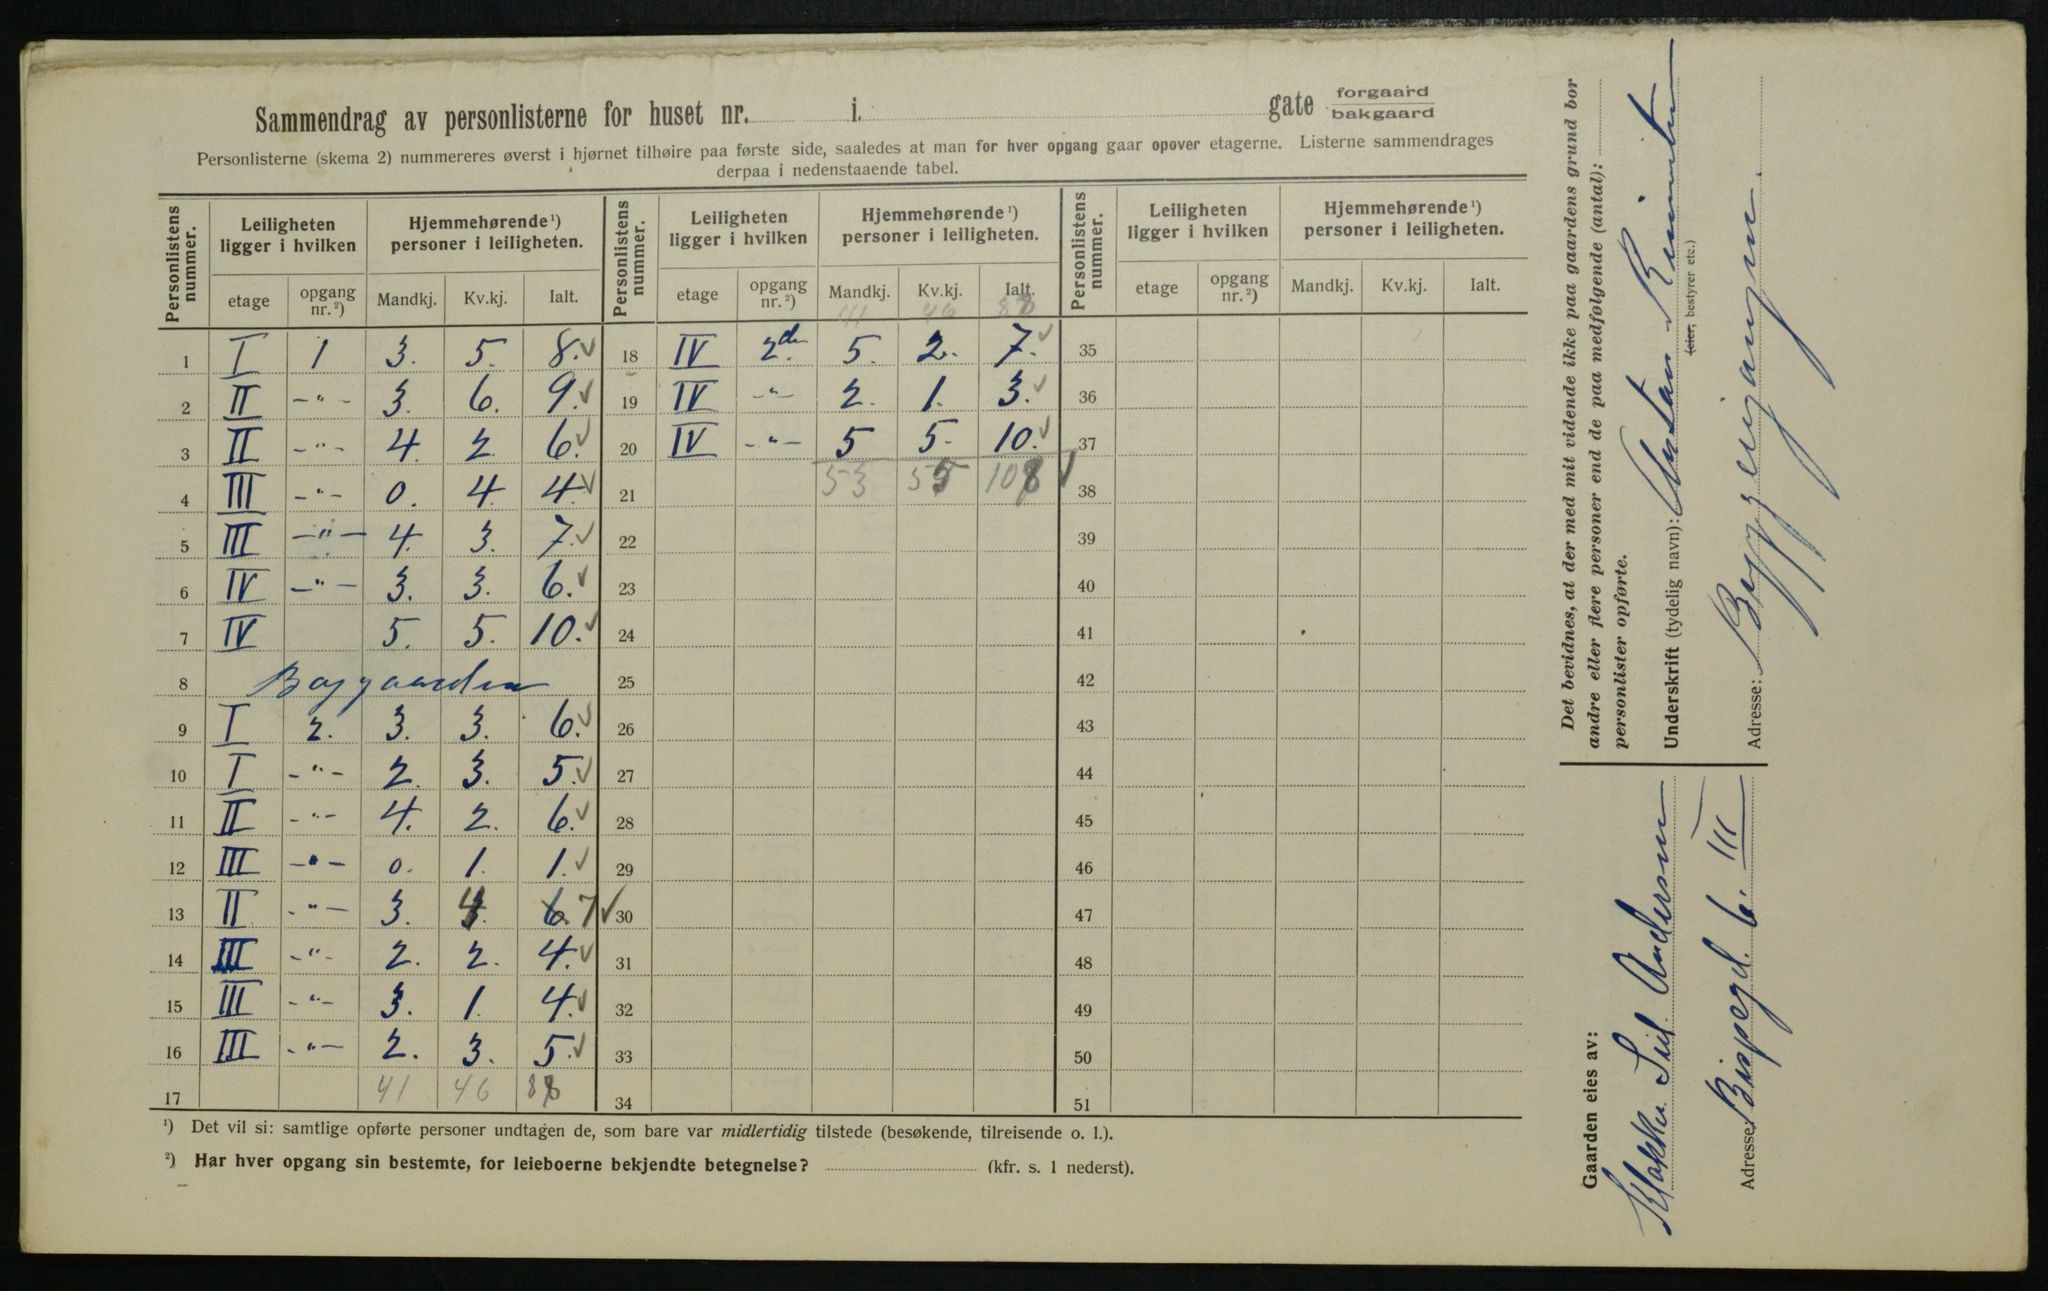 Sammendrag av personlisterne for huset nr. i. gate forgaard bakgaard
Personlisterne (skema 2) nummereres øverst i hjørnet tilhøire paa første side, saaledes at man for hver opgang gaar opover etagerne. Listerne sammendrages
derpaa i nedenstaaende tabel.
Personlistens nummer. Leiligheten ligger i hvilken Hjemmehørende¹) personer i leiligheten. Personlistens nummer. Leiligheten ligger i hvilken Hjemmehørende¹) personer i leiligheten. Personlistens nummer. Leiligheten ligger i hvilken Hjemmehørende¹) personer i leiligheten.
etage opgang nr.²) Mandkj. Kv.kj. Ialt. etage opgang nr.²) Mandkj. Kv.kj. Ialt. etage opgang nr.²) Mandkj. Kv.kj. Ialt.
41 46 88
1 I 1 3. 5. 8. ✓ 18 IV 2den 5. 2. 7. ✓ 35
2 II -"- 3. 6. 9. ✓ 19 IV -"- 2. 1. 3. ✓ 36
3 II -"- 4. 2. 6. ✓ 20 IV -"- 5 5. 10. ✓ 37
4 III -"- 0. 4 4. ✓ 21 53 55 108 ✓ 38
5 III -"- 4. 3. 7. ✓ 22 39
6 IV -"- 3. 3. 6. ✓ 23 40
7 IV 5. 5. 10. ✓ 24 41
8 Baggaarden 25 42
9 I 2. 3. 3. 6. ✓ 26 43
10 I -"- 2. 3. 5. ✓ 27 44
11 II -"- 4. 2. 6. ✓ 28 45
12 III -"- 0. 1. 1. ✓ 29 46
13 II -"- 3. 4 6. 7 ✓ 30 47
14 III -"- 2. 2. 4. ✓ 31 48
15 III -"- 3. 1. 4. ✓ 32 49
16 III -"- 2. 3. 5. ✓ 33 50
17 41 46 88 34 51
¹) Det vil si: samtlige opførte personer undtagen de, som bare var midlertidig tilstede (besøkende, tilreisende o. l.).
²) Har hver opgang sin bestemte, for leieboerne bekjendte betegnelse? (kfr. s. 1 nederst).
Det bevidnes, at der med mit vidende ikke paa gaardens grund bor
andre eller flere personer end de paa medfølgende (antal):
personlister opførte.
Underskrift (tydelig navn):
(eier, bestyrer etc.)
Adresse:
Gaarden eies av:
Andersen
Adresse: Bispegd. 6. III